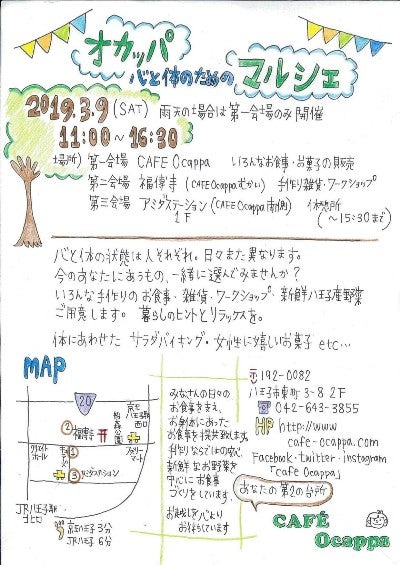 オカッパ
心と体のための マルシェ
2019.3.9 (SAT) 雨天の場合は第一会場のみ開催
11:00～16:30
場所) 第一会場 CAFE Ocappa いろんなお食事・お菓子の販売
第二会場 福傳寺 (CAFE Ocappaむかい) 手作り雑貨・ワークショップ
第三会場 アミダステーション (CAFE Ocappa南側) 休憩所
1F (～15:30まで)
心と体の状態は人それぞれ。日々また異なります。
今のあなたにあうもの、一緒に選んでみませんか?
いろんな手作りのお食事・雑貨・ワークショップ・新鮮八王子産野菜
ご用意します。暮らしのヒントとリラックスを。
体にあわせた サラダバイキング・女性に嬉しいお菓子 etc…
MAP
20
京王八王子駅
西口
公園
② 福傳寺
ファミリーマート
ホール
①
③ アミダステーション
JR八王子駅
北口
京王八王子 3分
JR八王子 6分
みなさんの日々の
お食事を支え、
お身体にあった
お食事を提供致します。
手作りならではの安心、
新鮮なお野菜を
中心にお食事
づくりをしています。
お越しを心より
お待ちしています
〒192-0082
八王子市東町3-8 2F
☎ 042-643-3855
HP http://www
cafe-ocappa.com
Facebook・twitter・instagram
「cafe Ocappa」
あなたの第2の台所
CAFÉ
Ocappa